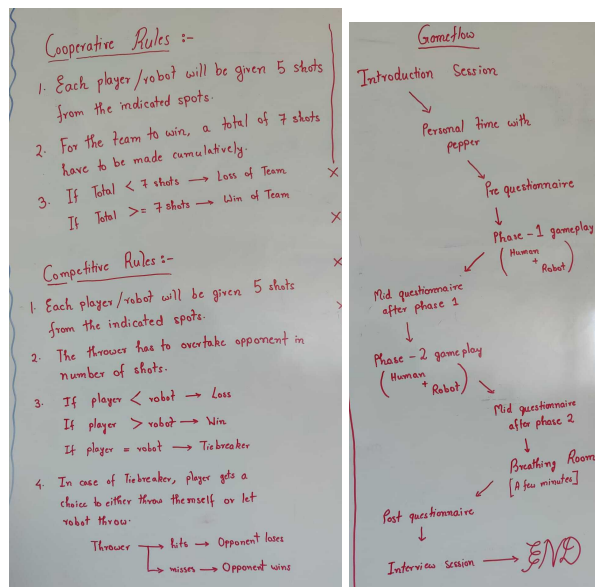 Cooperative Rules :-
1. Each player/robot will be given 5 shots
from the indicated spots.
2. For the team to win, a total of 7 shots
have to be made cumulatively.
3. If Total < 7 shots → Loss of Team
If Total >= 7 shots → Win of Team
Competitive Rules :-
1. Each player/robot will be given 5 shots
from the indicated spots.
2. The thrower has to overtake opponent in
number of shots.
3. If player < robot → Loss
If player > robot → Win
If player = robot → Tiebreaker
4. In case of Tiebreaker, player gets a
choice to either throw themself or let
robot throw.
Thrower → hits → Opponent loses
→ misses → Opponent wins
Gameflow
Introduction Session
Personal time with
pepper
Pre questionnaire
Phase-1 gameplay
(Human
+
Robot)
Mid questionnaire
after phase 1
Phase-2 gameplay
(Human
+
Robot)
Mid questionnaire
after phase 2
Breathing Room
[A few minutes]
Post questionnaire
Interview session → END